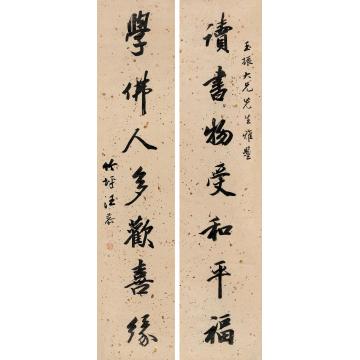 玉振大兄先生雅鑒
讀書物受和平福
學佛人多歡喜緣
竹坪汪